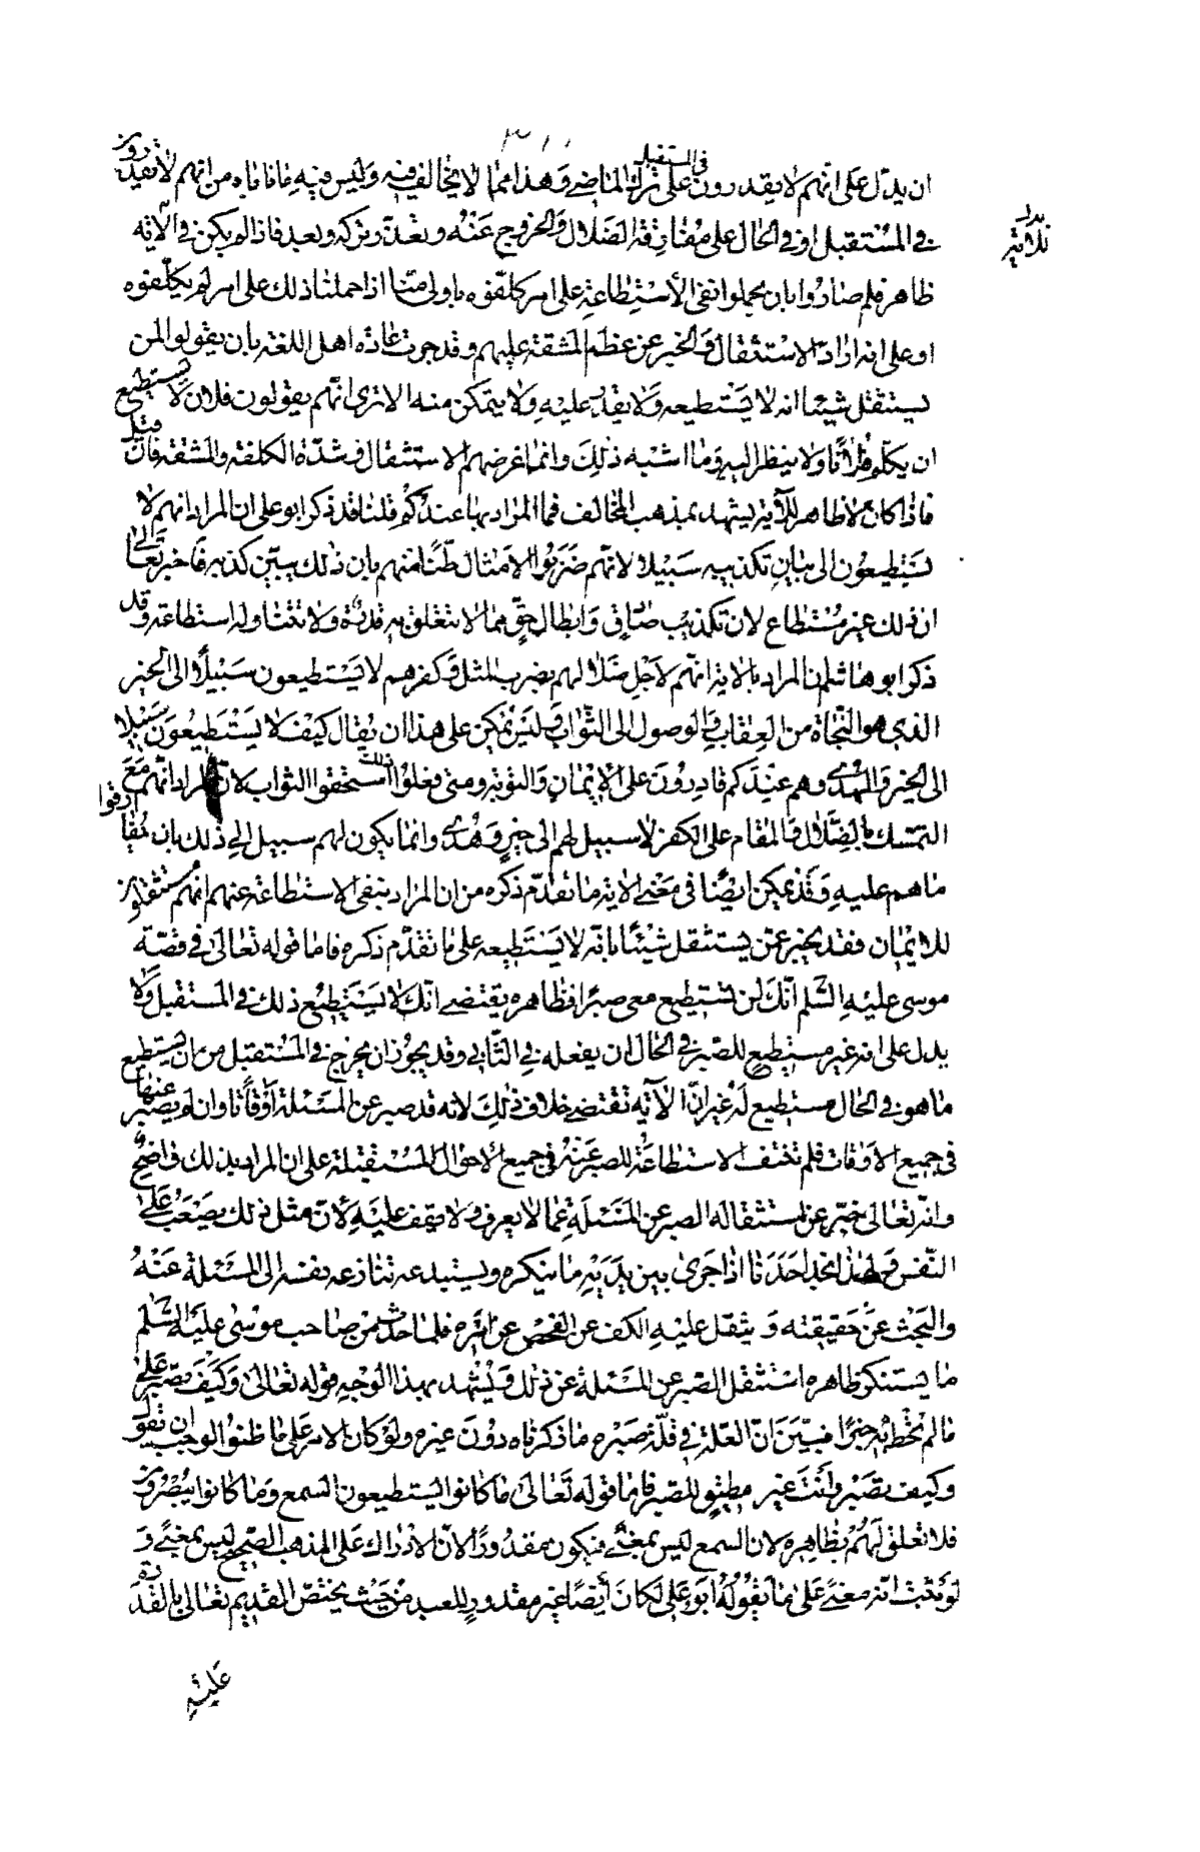 في المستقبل
ان يدل على انهم لا يقدرون على ترك الماضي وهذا مما لا يخالف فيه وليس فيه ما اباه من انهم لا يقدرون
في المستقبل او في الحال على مفارقة الضلال والخروج عنه وتعذر تركه وبعد فاذا لم يكن في الآية
ظاهر فلم صاروا بان يحملوا نفى الأستطاعة على امر كلفوه باولى منا اذا حملنا ذلك على امر لم يكلفوه
او على انه اراد الاستثقال والخبر عن عظم المشقة عليهم وقد جرت عادة اهل اللغة بان يقولوا لمن
يستثقل شيئا انه لا يستطيعه ولا يقدر عليه ولا يتمكن منه الا ترى انهم يقولون فلان لا يستطيع
ان يكلم فلانا ولا ينظر اليه وما اشبه ذلك وانما غرضهم الاستثقال وشدة الكلفة والمشقة فان قيل
فاذا كان لا ظاهر للآية يشهد بمذهب المخالف فما المراد بها عندكم قلنا قد ذكر ابو على ان المراد انهم لا
يستطيعون الى بيان تكذيبه سبيلا لانهم ضربوا الامثال ظنا منهم بان ذلك يبين كذبه فاخبر تعالى
ان ذلك غير مستطاع لان تكذيب صادق وابطال حق مما لا تتعلق به قدرة ولا تتناوله استطاعة وقد
ذكر ابو هاشم ان المراد بالاية انهم لاجل ضلالهم بضرب المثل وكفرهم لا يستطيعون سبيلا الى الخير
الذي هو النجاة من العقاب والوصول الى الثواب وليس يمكن على هذا ان يقال كيف لا يستطيعون سبيلا
الى الخير والهدى وهم عندكم قادرون على الايمان والتوبة ومتى فعلوا ذلك استحقوا الثواب لان المراد انهم مع
التمسك بالضلال والمقام على الكفر لا سبيل لهم الى خير وهدى وانما يكون لهم سبيل الى ذلك بان يفارقوا
ما هم عليه وقد يمكن ايضا في معنى الاية ما تقدم ذكره من ان المراد بنفى الاستطاعة عنهم انهم مستثقلون
للايمان فقد يخبر عمن يستثقل شيئا بانه لا يستطيعه على ما تقدم ذكره فاما قوله تعالى في قصة
موسى عليه السلم انك لن تستطيع معى صبرا فظاهره يقتضى انك لا تستطيع ذلك في المستقبل ولا
يدل على انه غير مستطيع للصبر في الحال ان يفعله في الثاني وقد يجوز ان يخرج في المستقبل من ان يستطيع
ما هو في الحال مستطيع له غير ان الآية تقتضى خلاف ذلك لانه قد صبر عن المسئلة اوقاتا وان لم يصبر عنها
في جميع الاوقات فلم تنتف الاستطاعة للصبر عنه في جميع الأحوال المستقبلة على ان المراد بذلك واضح
وانه تعالى خبر عن استثقاله الصبر عن المسئلة عما لا يعرف ولا يقف عليه لأن مثل ذلك يصعب على
النفس ولهذا نجد احدنا اذا جرى بين يديه ما ينكره ويستبدعه تنازعه نفسه الى المسئلة عنه
والبحث عن حقيقته ويثقل عليه الكف عن الفحص عن امره فلما حدث من صاحب موسى عليه السلم
ما يستنكر ظاهره استثقل الصبر عن المسئلة عن ذلك ويشهد بهذا الوجه قوله تعالى وكيف تصبر على
ما لم تحط به خبرا فبين ان العلة في قلة صبره ما ذكرناه دون غيره ولو كان الامر على ما ظنوا لوجب ان يقول
وكيف تصبر وانت غير مطيق للصبر فاما قوله تعالى ما كانوا يستطيعون السمع وما كانوا يبصرون
فلا تعلق لهم بظاهره لان السمع ليس بمعنى فيكون مقدورا لان الادراك على المذهب الصحيح ليس بمعنى و
لو ثبت انه معنى على ما يقوله ابو على لكان أيضا غير مقدور للعبد من حيث يختص القديم تعالى بالقدرة
عليه